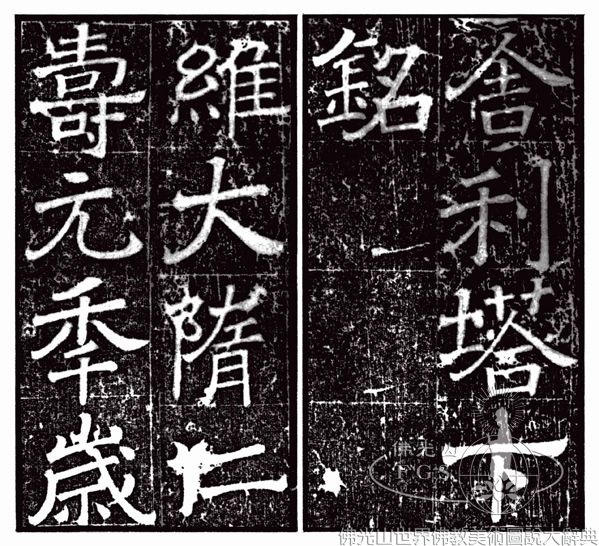 舍利塔下
銘
維大隋仁
壽元秊歲
佛光山
F.G.S.
佛光山世界佛教美術圖說大辭典